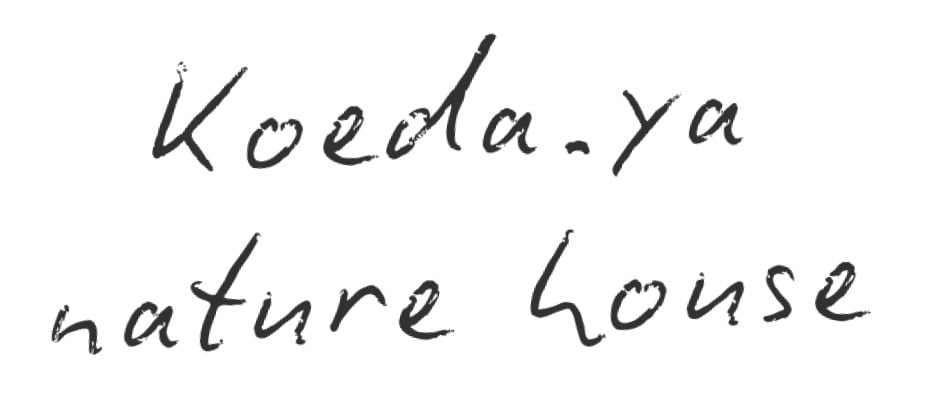 Koeda.ya
nature house